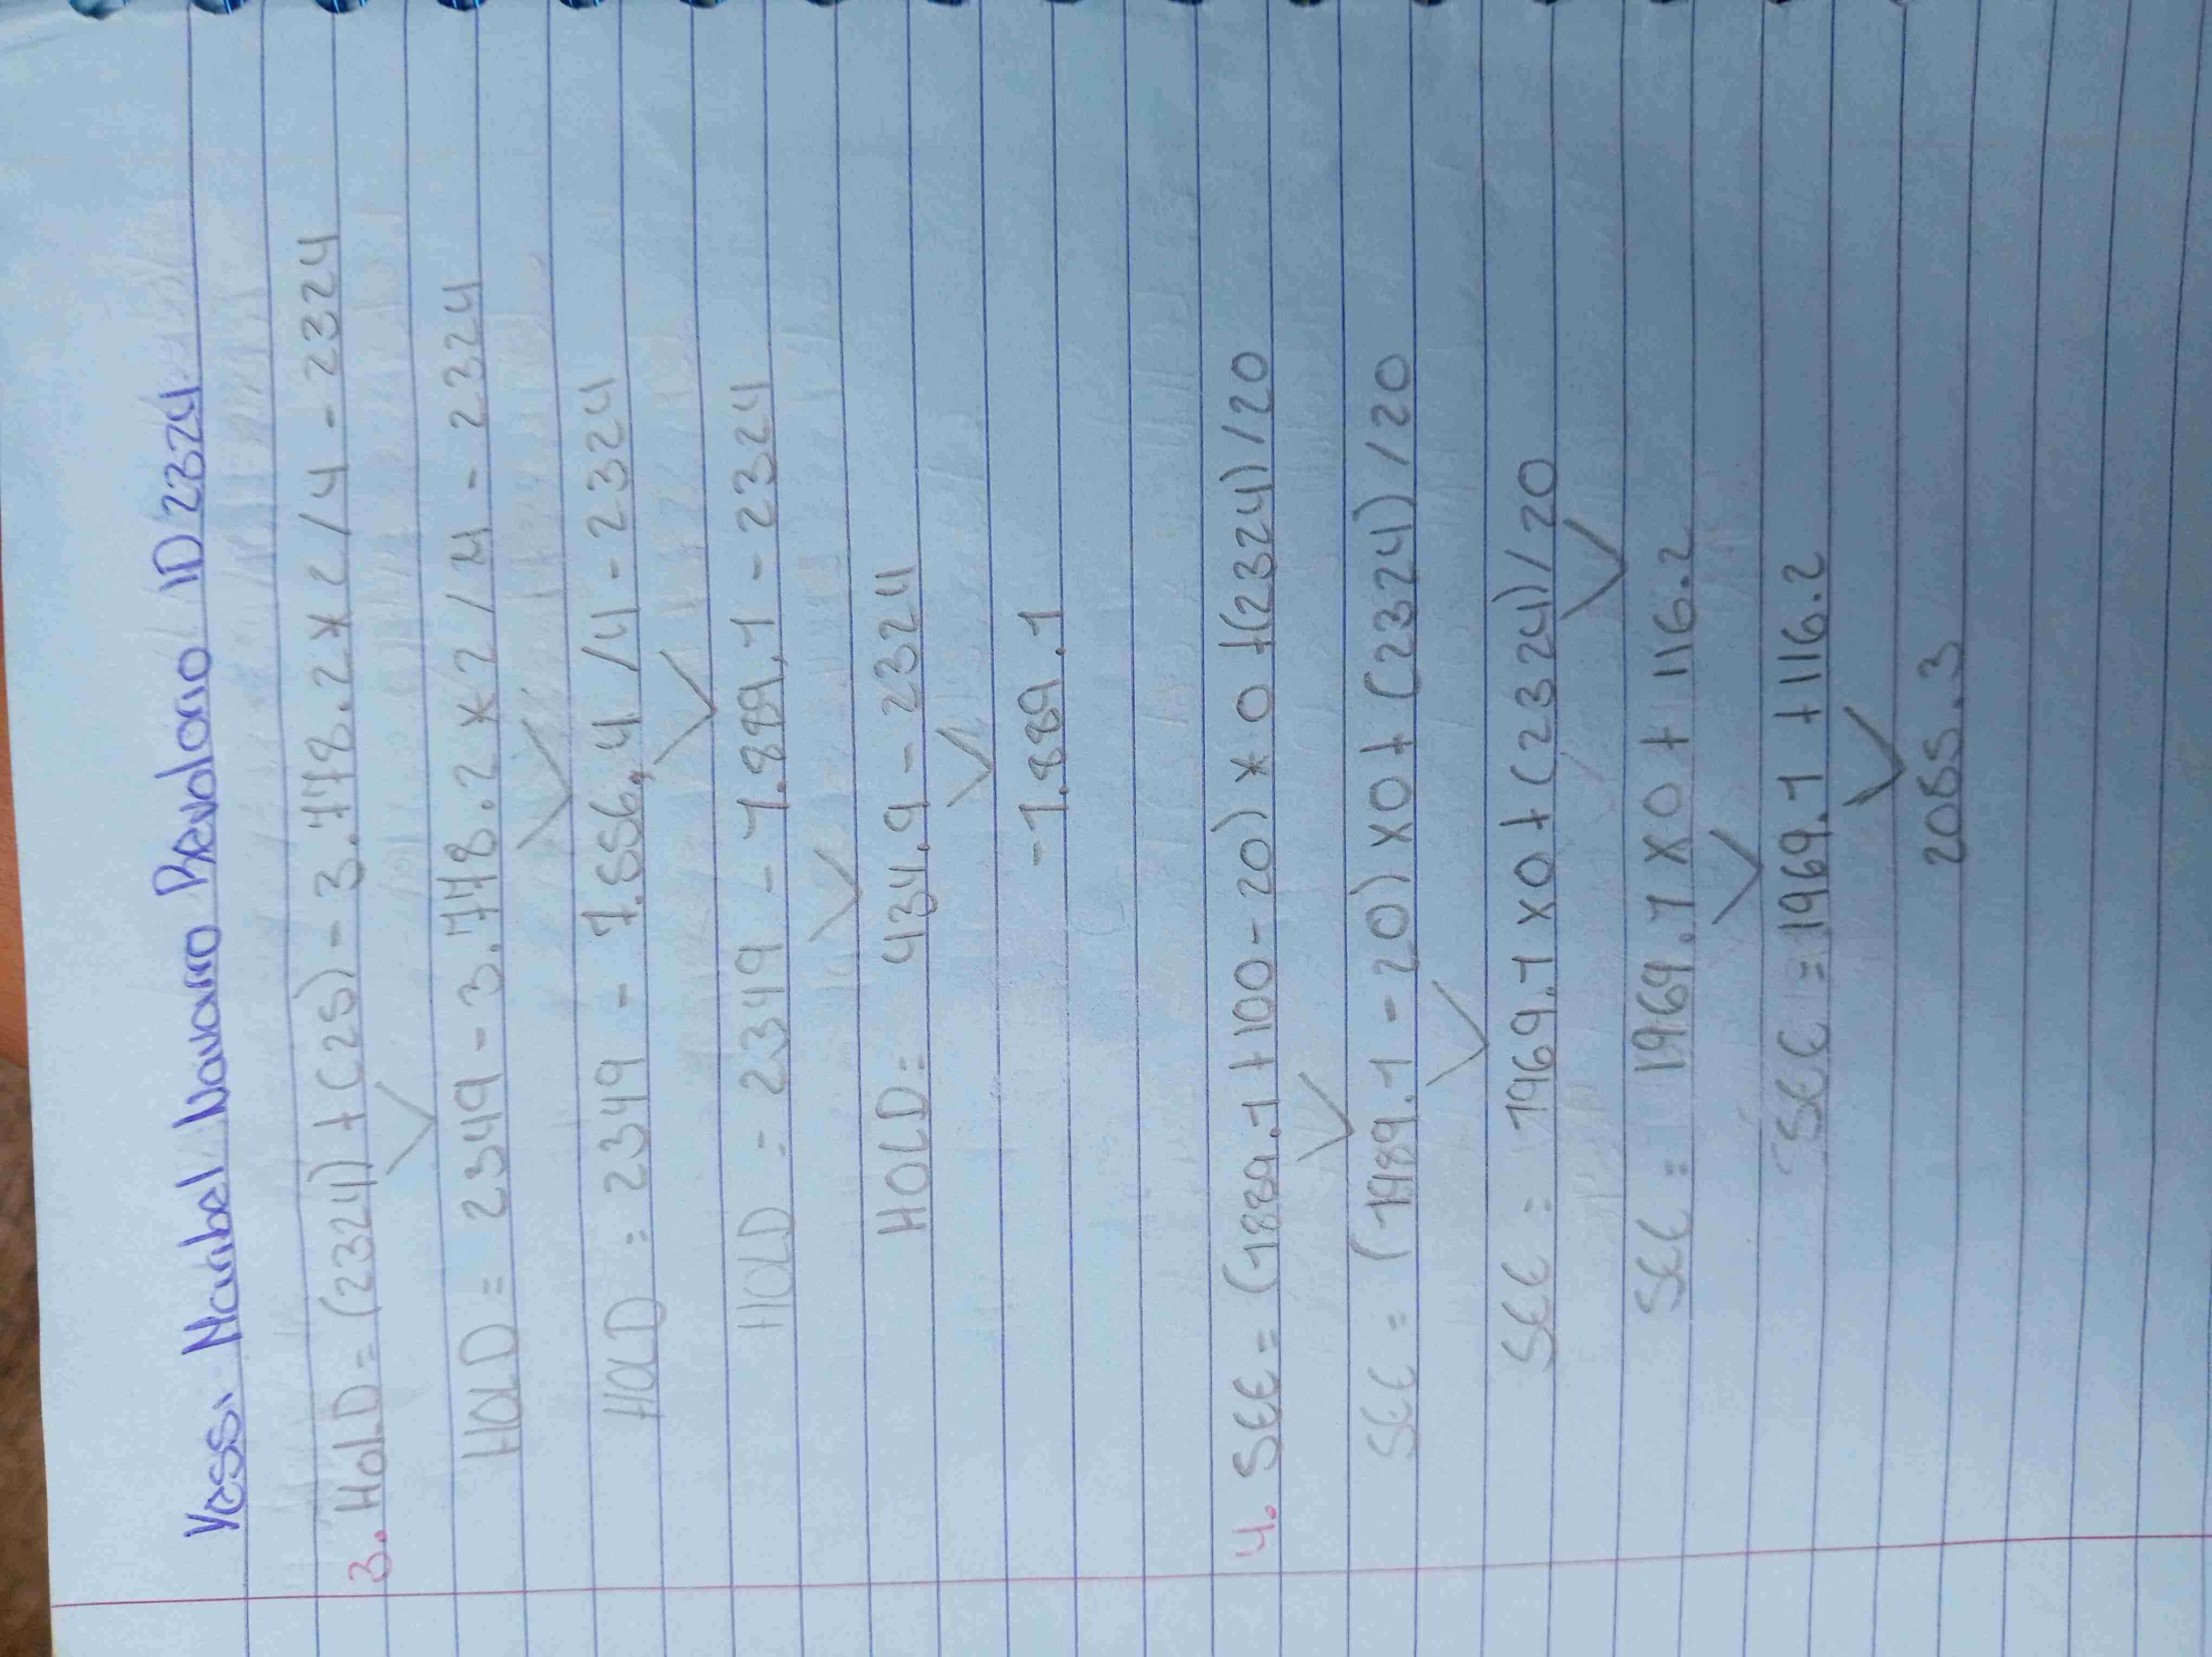 Yessi Maribel Navarro Revolorio ID 2324
3. HOLD = (2324) + (25) - 3.778.2 * 2 / 4 - 2324
HOLD = 2349 - 3.778.2 * 2 / 4 - 2324
HOLD = 2349 - 7.556,4 / 4 - 2324
HOLD = 2349 - 1.889,1 - 2324
HOLD = 434.9 - 2324
-1.889.1
4. SEE = (1889.1 + 100 - 20) * 0 + (2324) / 20
SEE = (1989.1 - 20) x 0 + (2324) / 20
SEE = 1969.1 x 0 + (2324) / 20
SEE = 1969.1 x 0 + 116.2
SEE = 1969.1 + 116.2
2085.3